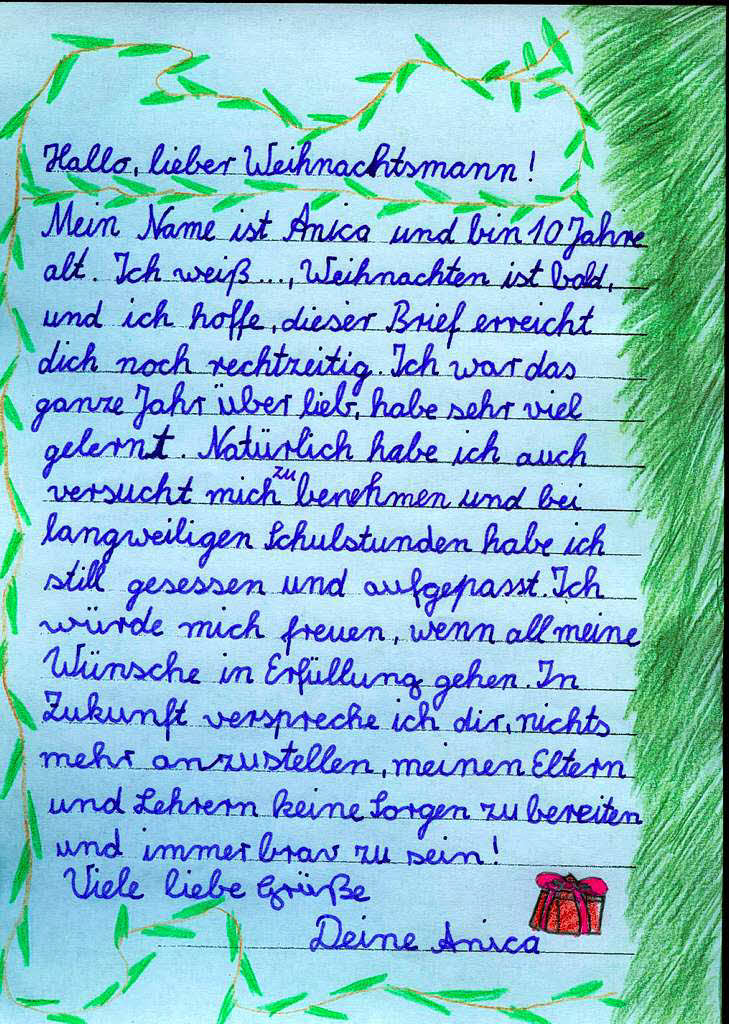 Hallo, lieber Weihnachtsmann!
Mein Name ist Anica und bin 10 Jahre
alt. Ich weiß..., Weihnachten ist bald,
und ich hoffe, dieser Brief erreicht
dich noch rechtzeitig. Ich war das
ganze Jahr über lieb, habe sehr viel
gelernt. Natürlich habe ich auch
versucht mich zu benehmen und bei
langweiligen Schulstunden habe ich
still gesessen und aufgepasst. Ich
würde mich freuen, wenn all meine
Wünsche in Erfüllung gehen. In
Zukunft verspreche ich dir, nichts
mehr anzustellen, meinen Eltern
und Lehrern keine Sorgen zu bereiten
und immer brav zu sein!
Viele liebe Grüße
Deine Anica